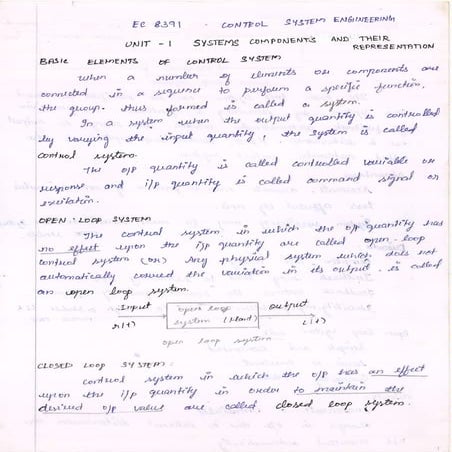 EC 8391 - CONTROL SYSTEM ENGINEERING
UNIT - I SYSTEMS COMPONENTS AND THEIR
REPRESENTATION
BASIC ELEMENTS OF CONTROL SYSTEM
When a number of elements or components are
connected in a sequence to perform a specific function,
the group thus formed is called a system.
In a system when the output quantity is controlled
by varying the input quantity, the system is called
control system.
The o/p quantity is called controlled variable or
response and i/p quantity is called command signal or
excitation.
OPEN-LOOP SYSTEM
The control system in which the o/p quantity has
no effect upon the i/p quantity are called open-loop
control system (or) Any physical system which does not
automatically correct the variation in its output is called
an open loop system.
Input open loop output
r(t) system (plant) c(t)
open loop system
CLOSED LOOP SYSTEM:
control system in which the o/p has an effect
upon the i/p quantity in order to maintain the
desired o/p value are called closed loop system.